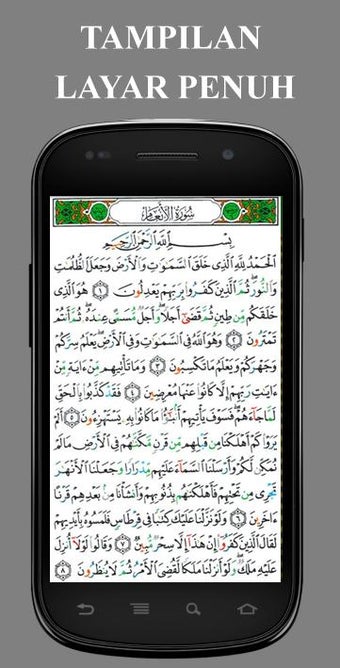 TAMPILAN
LAYAR PENUH
سُورَةُ الأَنْعَامِ
بِسْمِ اللَّهِ الرَّحْمَٰنِ الرَّحِيمِ
الْحَمْدُ لِلَّهِ الَّذِي خَلَقَ السَّمَاوَاتِ وَالْأَرْضَ وَجَعَلَ الظُّلُمَاتِ
وَالنُّورَ ثُمَّ الَّذِينَ كَفَرُوا بِرَبِّهِمْ يَعْدِلُونَ ١ هُوَ الَّذِي
خَلَقَكُمْ مِنْ طِينٍ ثُمَّ قَضَىٰ أَجَلًا وَأَجَلٌ مُسَمًّى عِنْدَهُ ثُمَّ أَنْتُمْ
تَمْتَرُونَ ٢ وَهُوَ اللَّهُ فِي السَّمَاوَاتِ وَفِي الْأَرْضِ يَعْلَمُ سِرَّكُمْ
وَجَهْرَكُمْ وَيَعْلَمُ مَا تَكْسِبُونَ ٣ وَمَا تَأْتِيهِمْ مِنْ آيَةٍ مِنْ
آيَاتِ رَبِّهِمْ إِلَّا كَانُوا عَنْهَا مُعْرِضِينَ ٤ فَقَدْ كَذَّبُوا بِالْحَقِّ
لَمَّا جَاءَهُمْ فَسَوْفَ يَأْتِيهِمْ أَنْبَاءُ مَا كَانُوا بِهِ يَسْتَهْزِءُونَ ٥ أَلَمْ
يَرَوْا كَمْ أَهْلَكْنَا مِنْ قَبْلِهِمْ مِنْ قَرْنٍ مَكَّنَّاهُمْ فِي الْأَرْضِ مَا لَمْ
نُمَكِّنْ لَكُمْ وَأَرْسَلْنَا السَّمَاءَ عَلَيْهِمْ مِدْرَارًا وَجَعَلْنَا الْأَنْهَارَ
تَجْرِي مِنْ تَحْتِهِمْ فَأَهْلَكْنَاهُمْ بِذُنُوبِهِمْ وَأَنْشَأْنَا مِنْ بَعْدِهِمْ قَرْنًا
آخَرِينَ ٦ وَلَوْ نَزَّلْنَا عَلَيْكَ كِتَابًا فِي قِرْطَاسٍ فَلَمَسُوهُ بِأَيْدِيهِمْ
لَقَالَ الَّذِينَ كَفَرُوا إِنْ هَٰذَا إِلَّا سِحْرٌ مُبِينٌ ٧ وَقَالُوا لَوْلَا أُنْزِلَ
عَلَيْهِ مَلَكٌ وَلَوْ أَنْزَلْنَا مَلَكًا لَقُضِيَ الْأَمْرُ ثُمَّ لَا يُنْظَرُونَ ٨